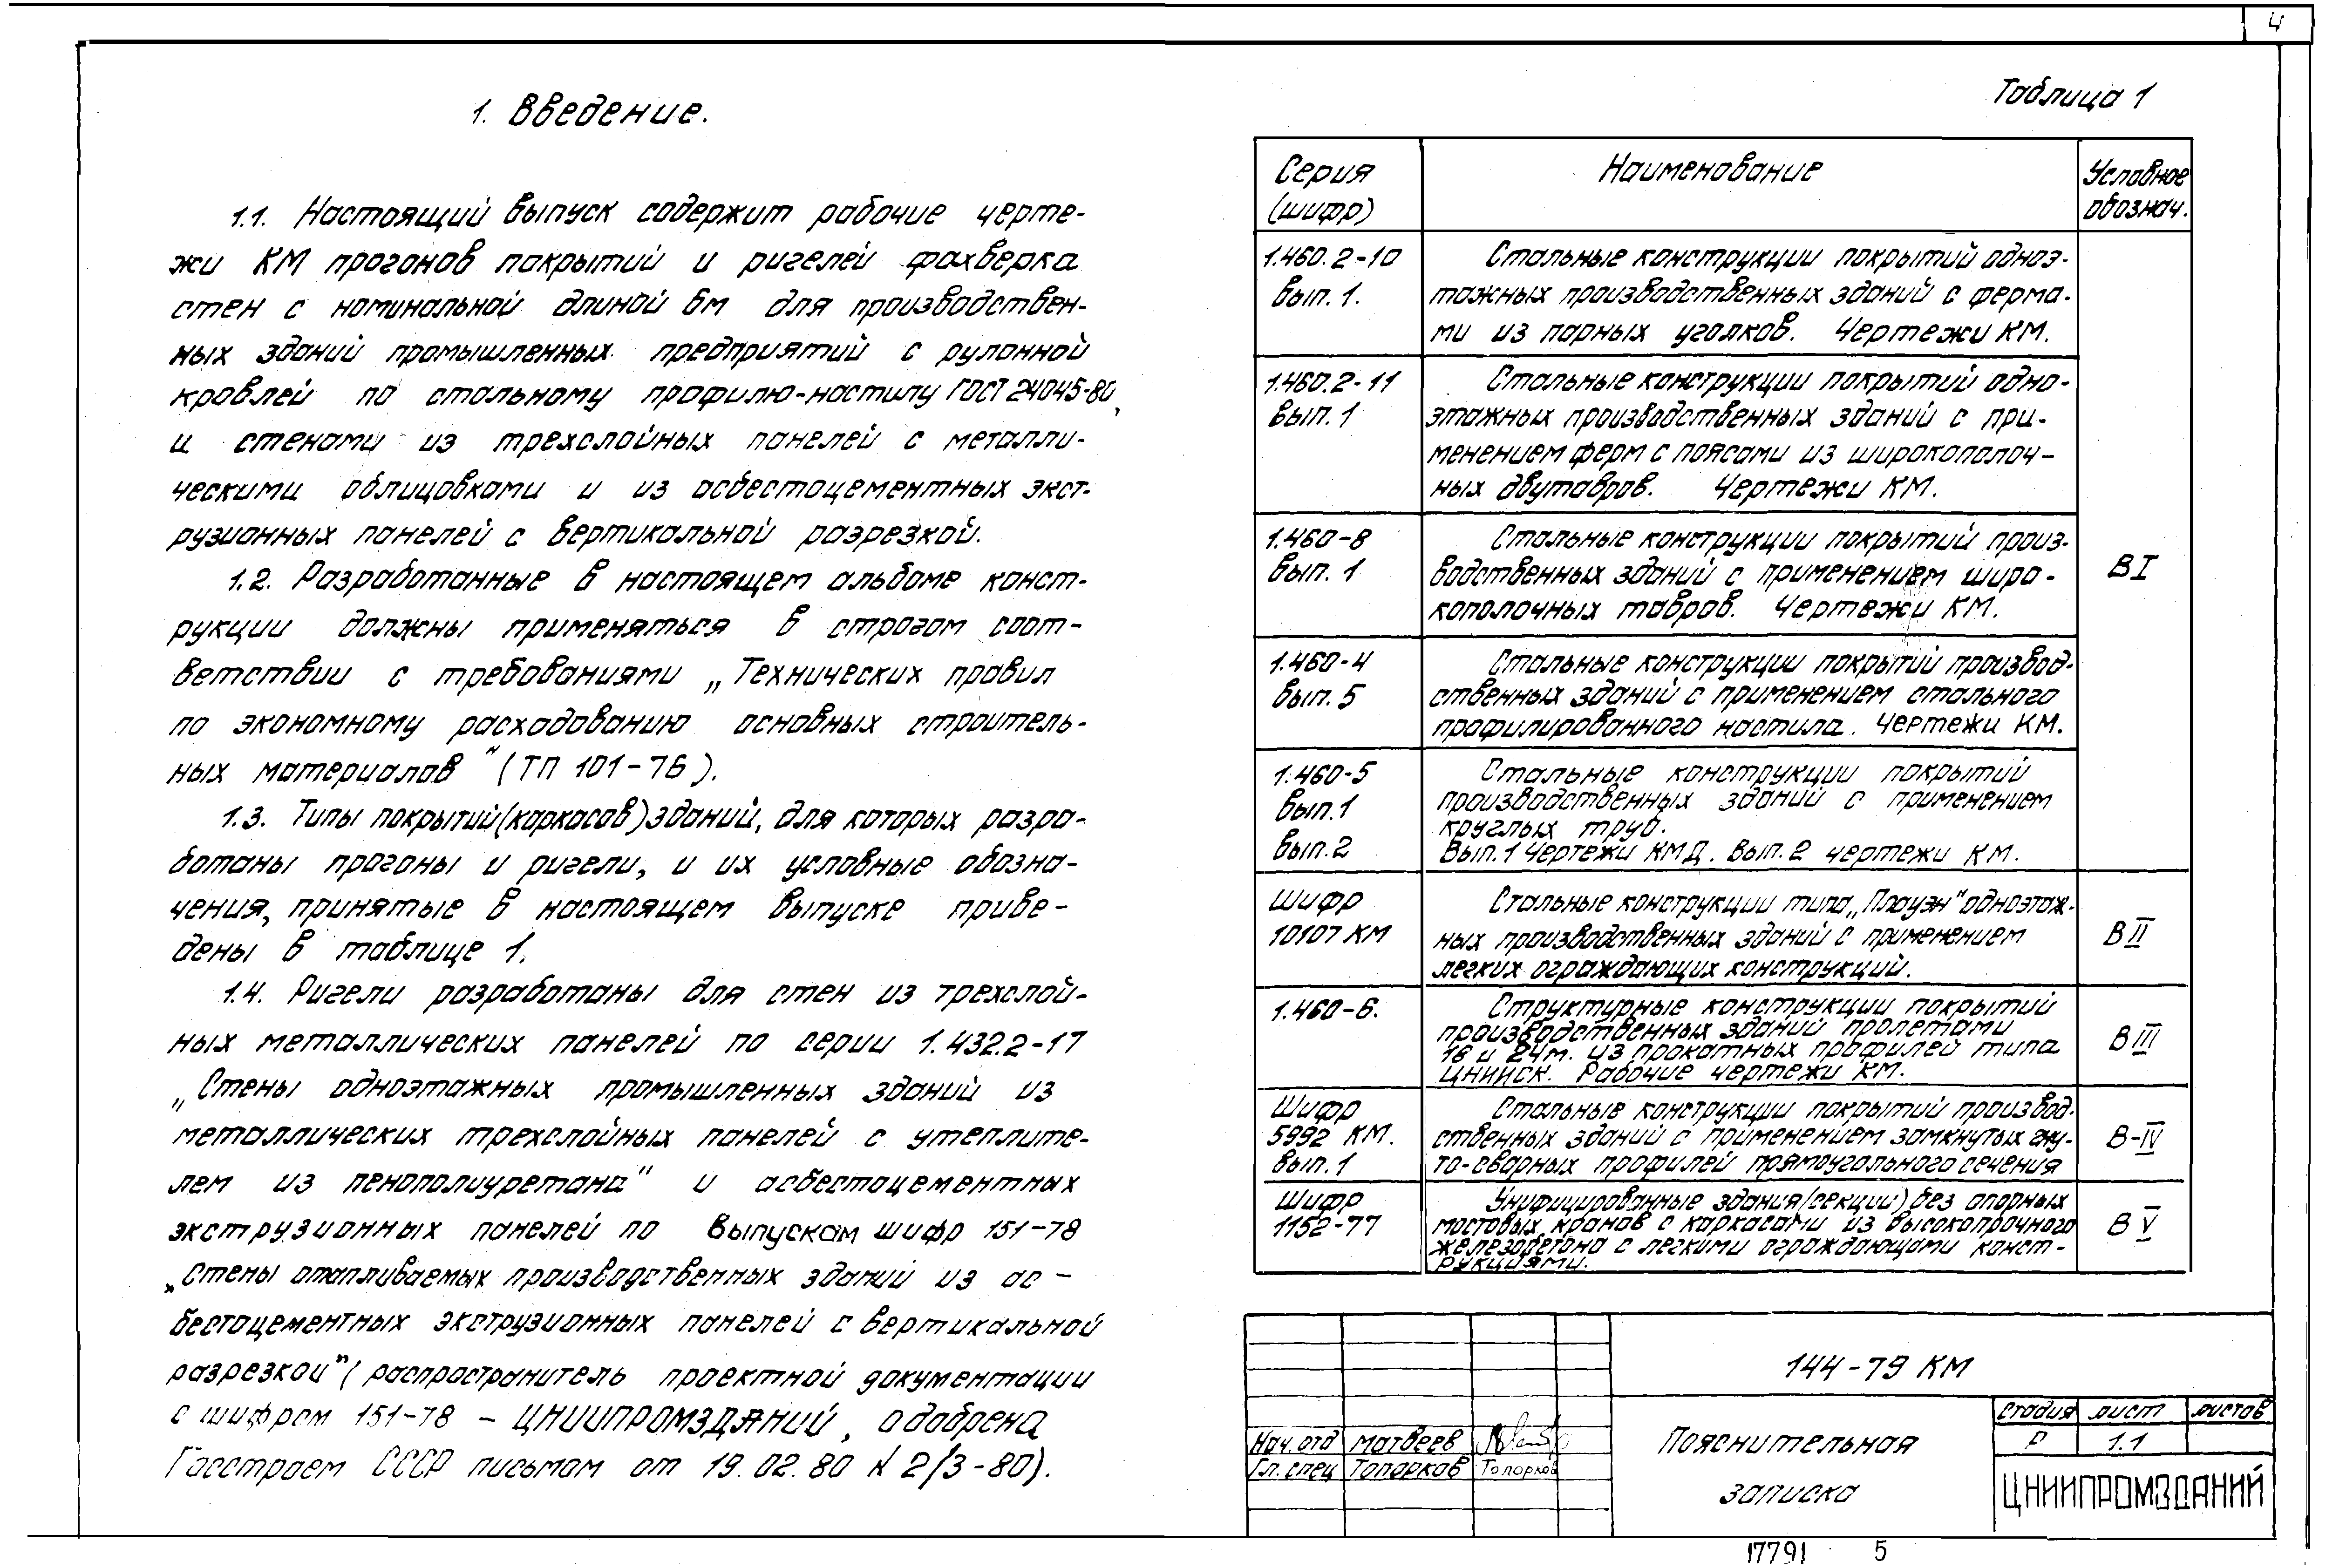 4
1. Введение.
1.1. Настоящий выпуск содержит рабочие черте-
жи КМ прогонов покрытий и ригелей фахверка
стен с номинальной длиной 6м для производствен-
ных зданий промышленных предприятий с рулонной
кровлей по стальному профилю-настилу ГОСТ 24045-80,
и стенами из трехслойных панелей с металли-
ческими облицовками и из асбестоцементных экст-
рузионных панелей с вертикальной разрезкой.
1.2. Разработанные в настоящем альбоме конст-
рукции должны применяться в строгом соот-
ветствии с требованиями „Технических правил
по экономному расходованию основных строитель-
ных материалов" (ТП 101-76).
1.3. Типы покрытий(каркасов)зданий, для которых разра-
ботаны прогоны и ригели, и их условные обозна-
чения, принятые в настоящем выпуске приве-
дены в таблице 1.
1.4. Ригели разработаны для стен из трехслой-
ных металлических панелей по серии 1.432.2-17
„Стены одноэтажных промышленных зданий из
металлических трехслойных панелей с утеплите-
лем из пенополиуретана" и асбестоцементных
экструзионных панелей по выпускам шифр 151-78
„Стены отапливаемых производственных зданий из ас-
бестоцементных экструзионных панелей с вертикальной
разрезкой"(распространитель проектной документации
с шифром 151-78 - ЦНИИПРОМЗДАНИЙ, одобрена
Госстроем СССР письмом от 19.02.80 N 2/3-80).
Таблица 1
Серия (шифр)
Наименование
Условное обознач.
1.460.2-10 вып. 1.
Стальные конструкции покрытий одноэ-
тажных производственных зданий с ферма-
ми из парных уголков. Чертежи КМ.
1.460.2-11 вып. 1
Стальные конструкции покрытий одно-
этажных производственных зданий с при-
менением ферм с поясами из широкополоч-
ных двутавров. Чертежи КМ.
1.460-8 вып. 1
Стальные конструкции покрытий произ-
водственных зданий с применением широ-
кополочных тавров. Чертежи КМ.
ВI
1.460-4 вып. 5
Стальные конструкции покрытий производ-
ственных зданий с применением стального
профилированного настила. Чертежи КМ.
1.460-5 вып.1 вып.2
Стальные конструкции покрытий
производственных зданий с применением
круглых труб.
Вып.1 Чертежи КМД. Вып.2 чертежи КМ.
Шифр 10107 КМ
Стальные конструкции типа „Плауэн" одноэтаж-
ных производственных зданий с применением
легких ограждающих конструкций.
В II
1.460-6.
Структурные конструкции покрытий
производственных зданий пролетами
18 и 24м. из прокатных профилей типа
ЦНИИСК. Рабочие чертежи КМ.
В III
Шифр 5992 КМ. вып.1
Стальные конструкции покрытий производ-
ственных зданий с применением замкнутых гну-
то-сварных профилей прямоугольного сечения
В-IV
Шифр 1152-77
Унифицированные здания(секции) без опорных
мостовых кранов с каркасами из высокопрочного
железобетона с легкими ограждающами конст-
рукциями.
В V
144-79 КМ
Нач. отд Матвеев
Гл. спец Топорков Топорков
Пояснительная
записка
стадия лист листов
Р 1.1
ЦНИИПРОМЗДАНИЙ
17791 5